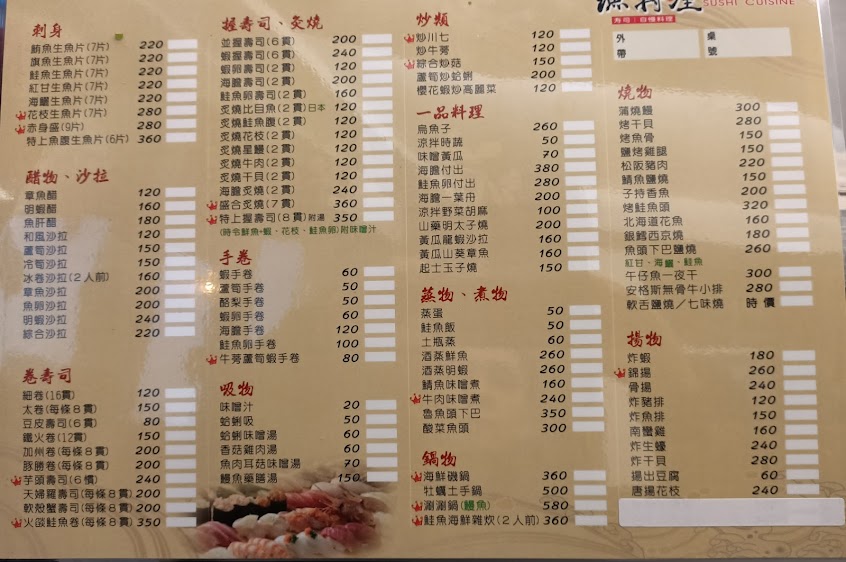 刺身
鮪魚生魚片(7片) 220
旗魚生魚片(7片) 220
鮭魚生魚片(7片) 220
紅甘生魚片(7片) 220
海鱺生魚片(7片) 220
花枝生魚片(7片) 280
赤身盛(9片) 280
特上魚腹生魚片(6片) 360
醋物、沙拉
章魚醋 120
明蝦醋 160
魚肝醋 180
和風沙拉 120
蘆筍沙拉 150
冷筍沙拉 150
冰卷沙拉(2人前) 160
章魚沙拉 200
魚卵沙拉 200
明蝦沙拉 240
綜合沙拉 220
卷壽司
細卷(16貫) 120
太卷(每條8貫) 150
豆皮壽司(6貫) 80
鐵火卷(12貫) 150
加州卷(每條8貫) 200
豚勝卷(每條8貫) 200
芋頭壽司(6價) 240
天婦羅壽司(每條8貫) 200
軟殼蟹壽司(每條8貫) 200
火燄鮭魚卷(每條8貫) 350
握壽司、炙燒
並握壽司(6貫) 200
蝦握壽司(6貫) 240
蝦卵壽司(2貫) 120
海膽壽司(2貫) 200
鮭魚卵壽司(2貫) 160
炙燒比目魚(2貫)日本 120
炙燒鮭魚腹(2貫) 120
炙燒花枝(2貫) 120
炙燒星鰻(2貫) 120
炙燒牛肉(2貫) 120
炙燒干貝(2貫) 120
海膽炙燒(2貫) 240
盛合炙燒(7貫) 360
特上握壽司(8貫)附湯 350
(時令鮮魚+蝦、花枝、鮭魚卵)附味噌汁
手卷
蝦手卷 60
蘆筍手卷 50
酪梨手卷 50
蝦卵手卷 60
海膽手卷 120
鮭魚卵手卷 100
牛蒡蘆筍蝦手卷 80
吸物
味噌汁 20
蛤蜊吸 50
蛤蜊味噌湯 60
香菇雞肉湯 60
魚肉茸菇味噌湯 70
鰻魚藥膳湯 150
炒類
炒川七 120
炒牛蒡 120
綜合炒菇 150
蘆筍炒蛤蜊 200
櫻花蝦炒高麗菜 120
一品料理
烏魚子 260
涼拌時蔬 50
味噌黃瓜 70
海膽付出 380
鮭魚卵付出 280
海膽一葉舟 200
涼拌野菜胡麻 100
山藥明太子燒 200
黃瓜龍蝦沙拉 160
黃瓜山葵章魚 160
起士玉子燒 150
蒸物、煮物
蒸蛋 50
鮭魚飯 50
土瓶蒸 60
酒蒸鮮魚 260
酒蒸明蝦 260
鯖魚味噌煮 160
牛肉味噌煮 240
魯魚頭下巴 350
酸菜魚頭 300
鍋物
海鮮磯鍋 360
牡蠣土手鍋 500
涮涮鍋(鰻魚) 580
鮭魚海鮮雜炊(2人前) 360
SUSHI CUISINE
壽司│自慢料理
外帶
桌號
燒物
蒲燒鰻 300
烤干貝 280
烤魚骨 150
鹽烤雞腿 150
松阪豬肉 220
鯖魚鹽燒 150
子持香魚 200
烤鮭魚頭 320
北海道花魚 160
銀鱈西京燒 160
魚頭下巴鹽燒 260
紅甘、海鱺、鮭魚
午仔魚一夜干 300
安格斯無骨牛小排 280
軟舌鹽燒／七味燒 時價
揚物
炸蝦 180
錦揚 260
骨揚 240
炸豬排 200
炸魚排 150
南蠻雞 160
炸生蠔 240
炸干貝 280
揚出豆腐 60
唐揚花枝 240